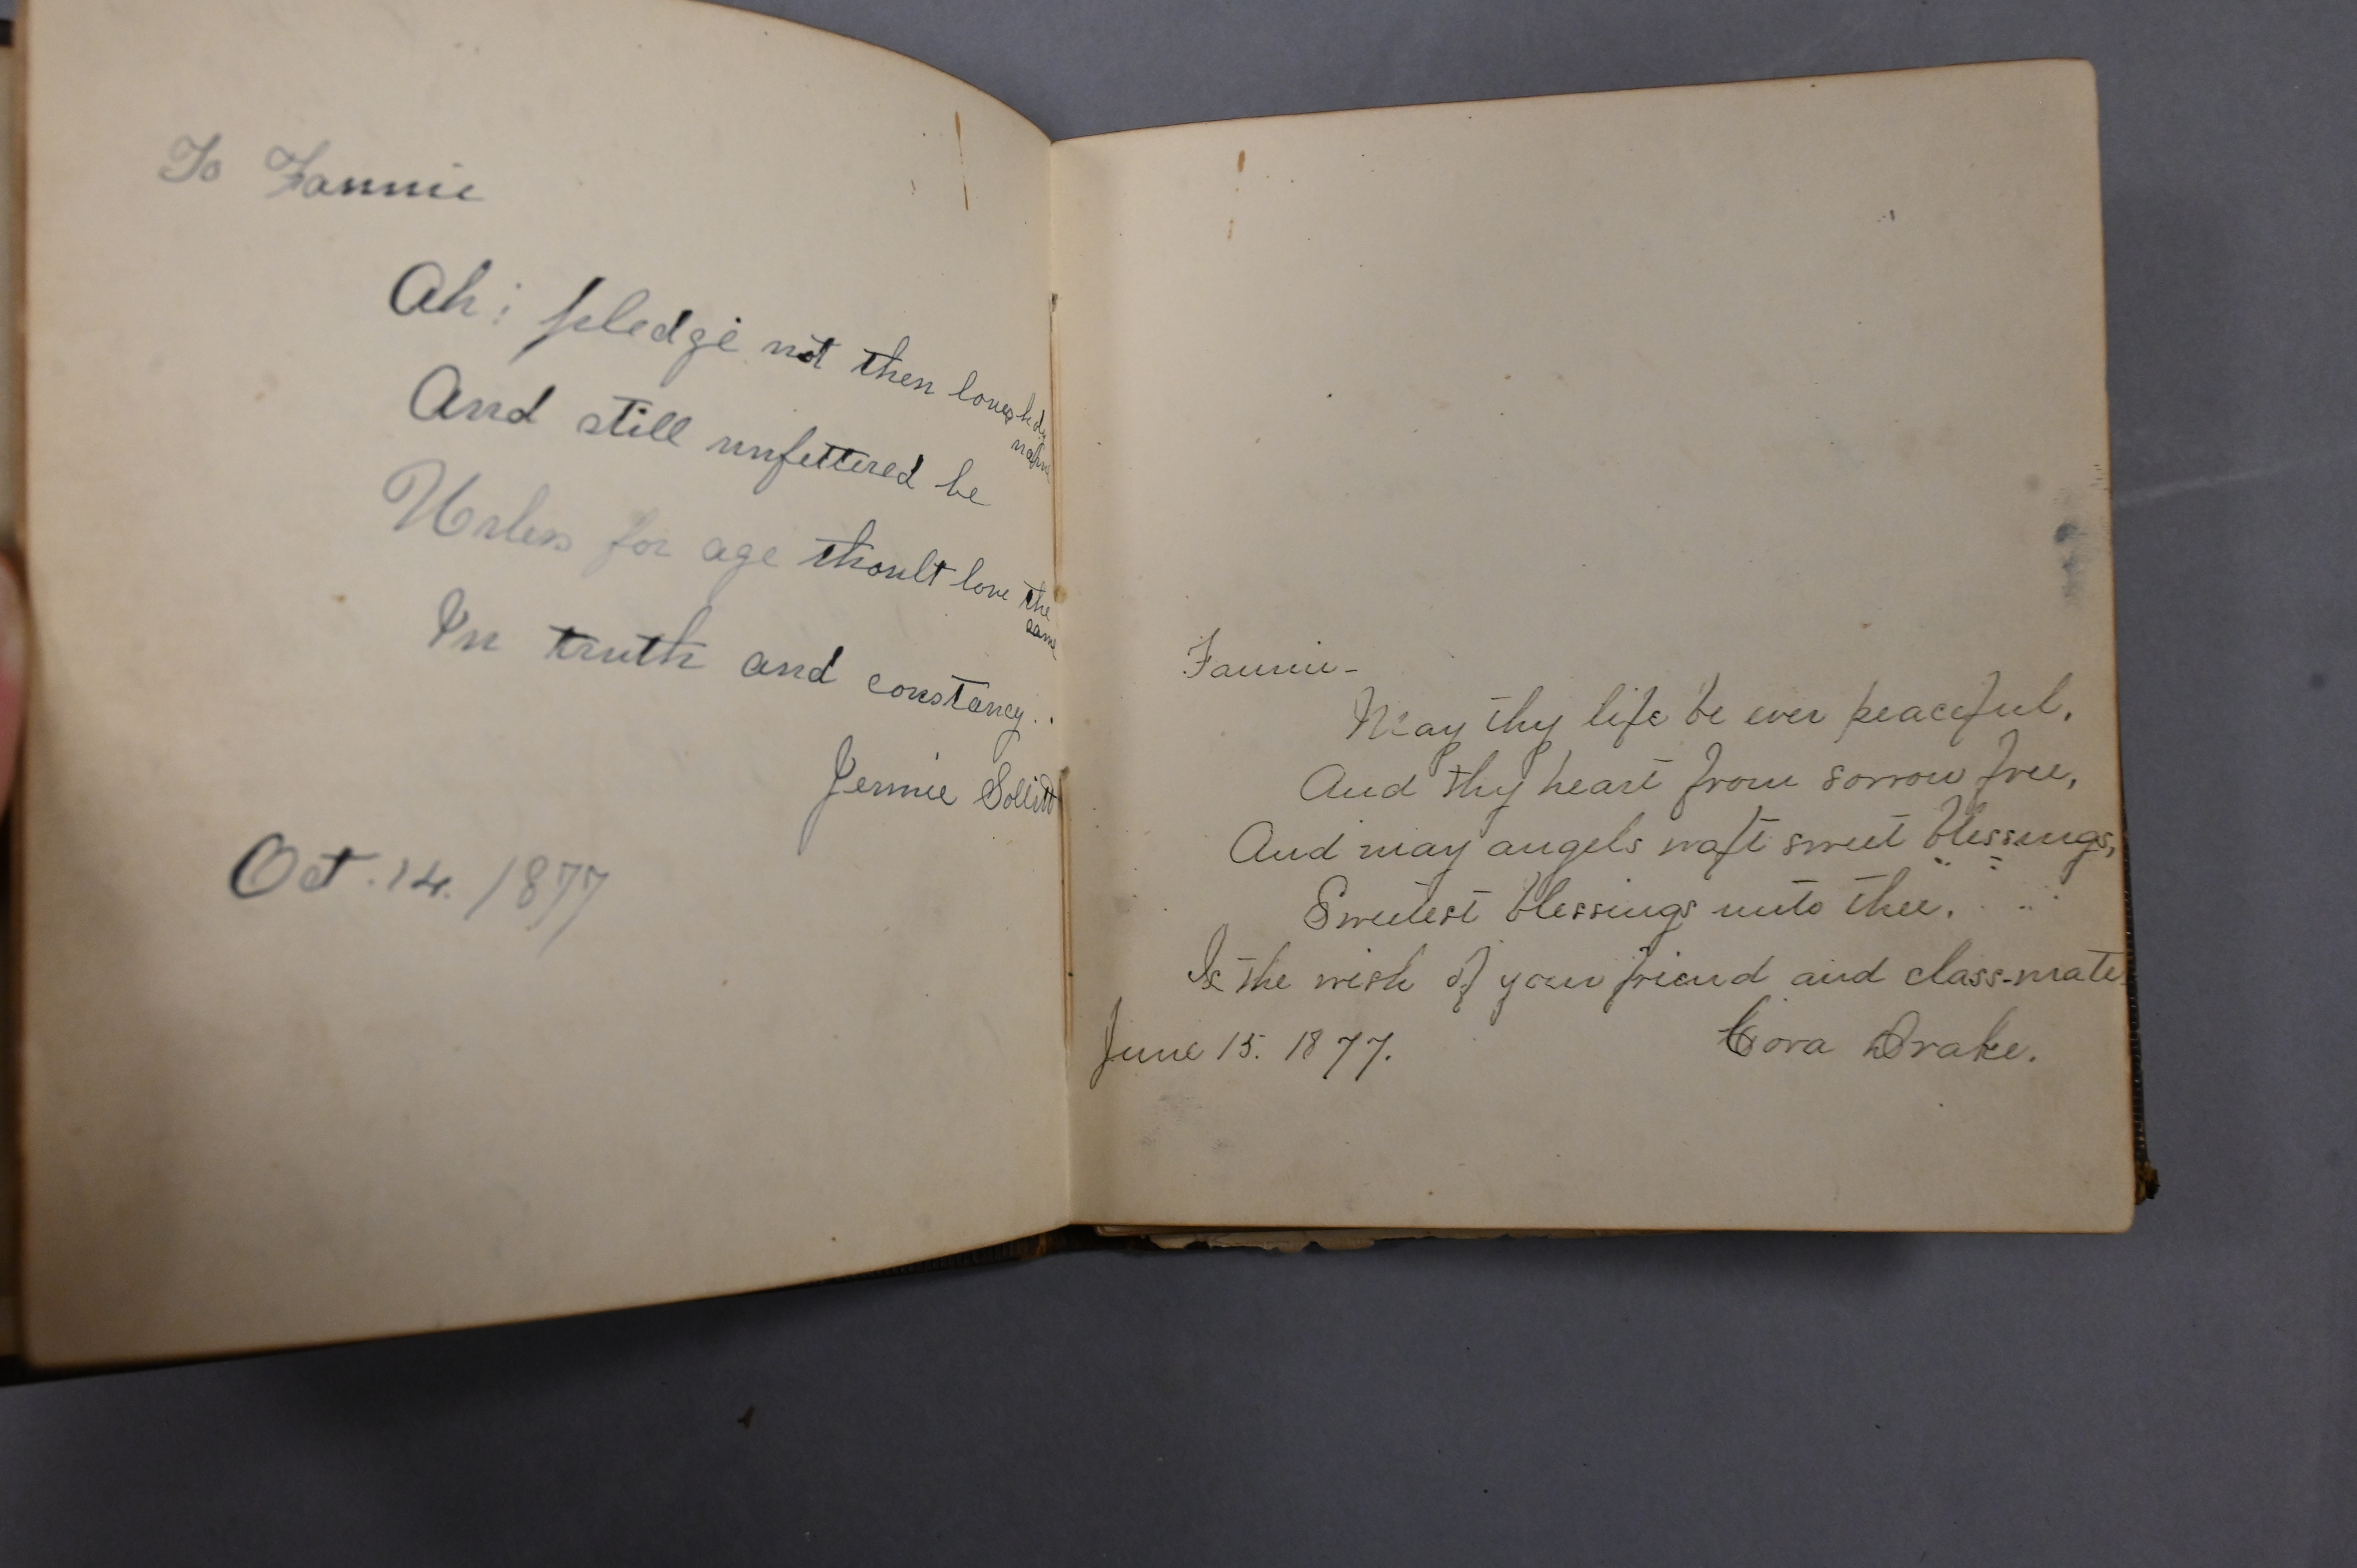 To Fannie
Ah! pledge not then loves holy
name
And still unfettered be
Unless for age thoult love the
same
In truth and constancy..
Jennie Sollitt
Oct. 14. 1877
Fannie-
May thy life be ever peaceful,
And thy heart from sorrow free,
And may angels waft sweet blessings,
Sweetest blessings unto thee.
Is the wish of your friend and class-mate
June 15. 1877.
Cora Drake.